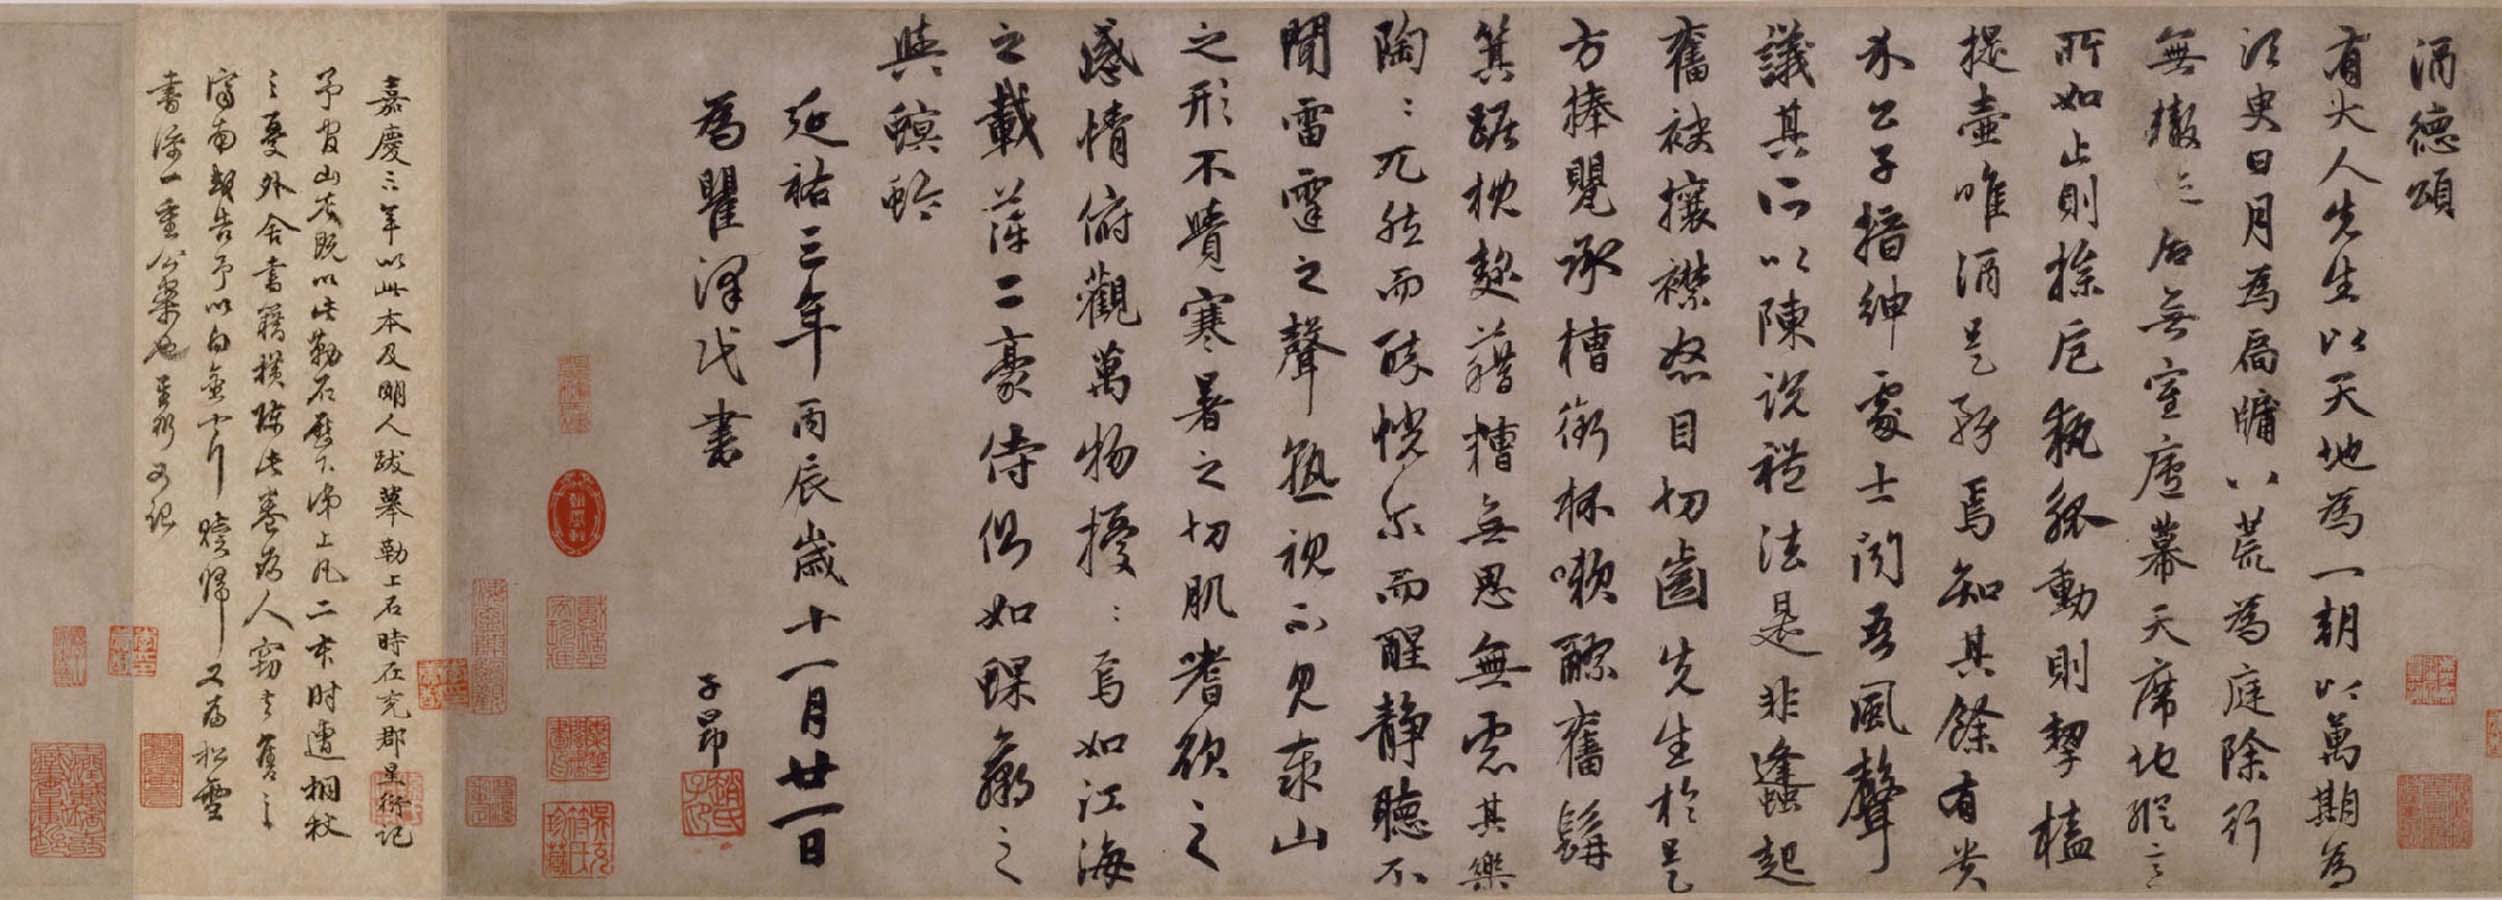 酒德頌
有大人先生以天地為一朝以萬期為
須臾日月為扃牖八荒為庭除行
無轍迹居無室廬幕天席地縱意
所如止則操卮執觚動則挈榼
提壺唯酒是務焉知其餘有貴
介公子搢紳處士聞吾風聲
議其所以陳說禮法是非蜂起
奮袂攘襟怒目切齒先生於是
方捧甖承槽銜杯漱醪奮髯
箕踞枕麴藉糟無思無慮其樂
陶〻兀然而醉恍尔而醒靜聽不
聞雷霆之聲熟視不見泰山
之形不覺寒暑之切肌嗜欲之
感情俯觀萬物擾〻焉如江海
之載萍二豪侍側如蜾蠃之
與螟蛉
延祐三年丙辰歲十一月廿一日
為瞿澤民書
子昂
嘉慶六年以此本及明人跋摹勒上石時在兗郡星衍記
予官山左既以此勒石歷下 上凡二本时遭桐杖
之憂外舍書籍橫陳此卷為人竊去舊之
濟南 告予以白金 贖歸又為松雪
書添一重公案也星衍又記
趙氏子昂